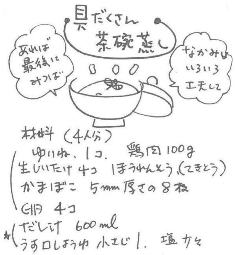 具だくさん
茶碗蒸し
あれば
最後に
みつば
なかみは
いろいろ
工夫して
材料 (4人分)
ゆりね 1コ 鶏肉100g
生しいたけ4コ ほうれんそう(てきとう)
かまぼこ 5mm厚さの8枚
卵 4コ
だし汁 600ml
うす口しょうゆ 小さじ1. 塩 少々